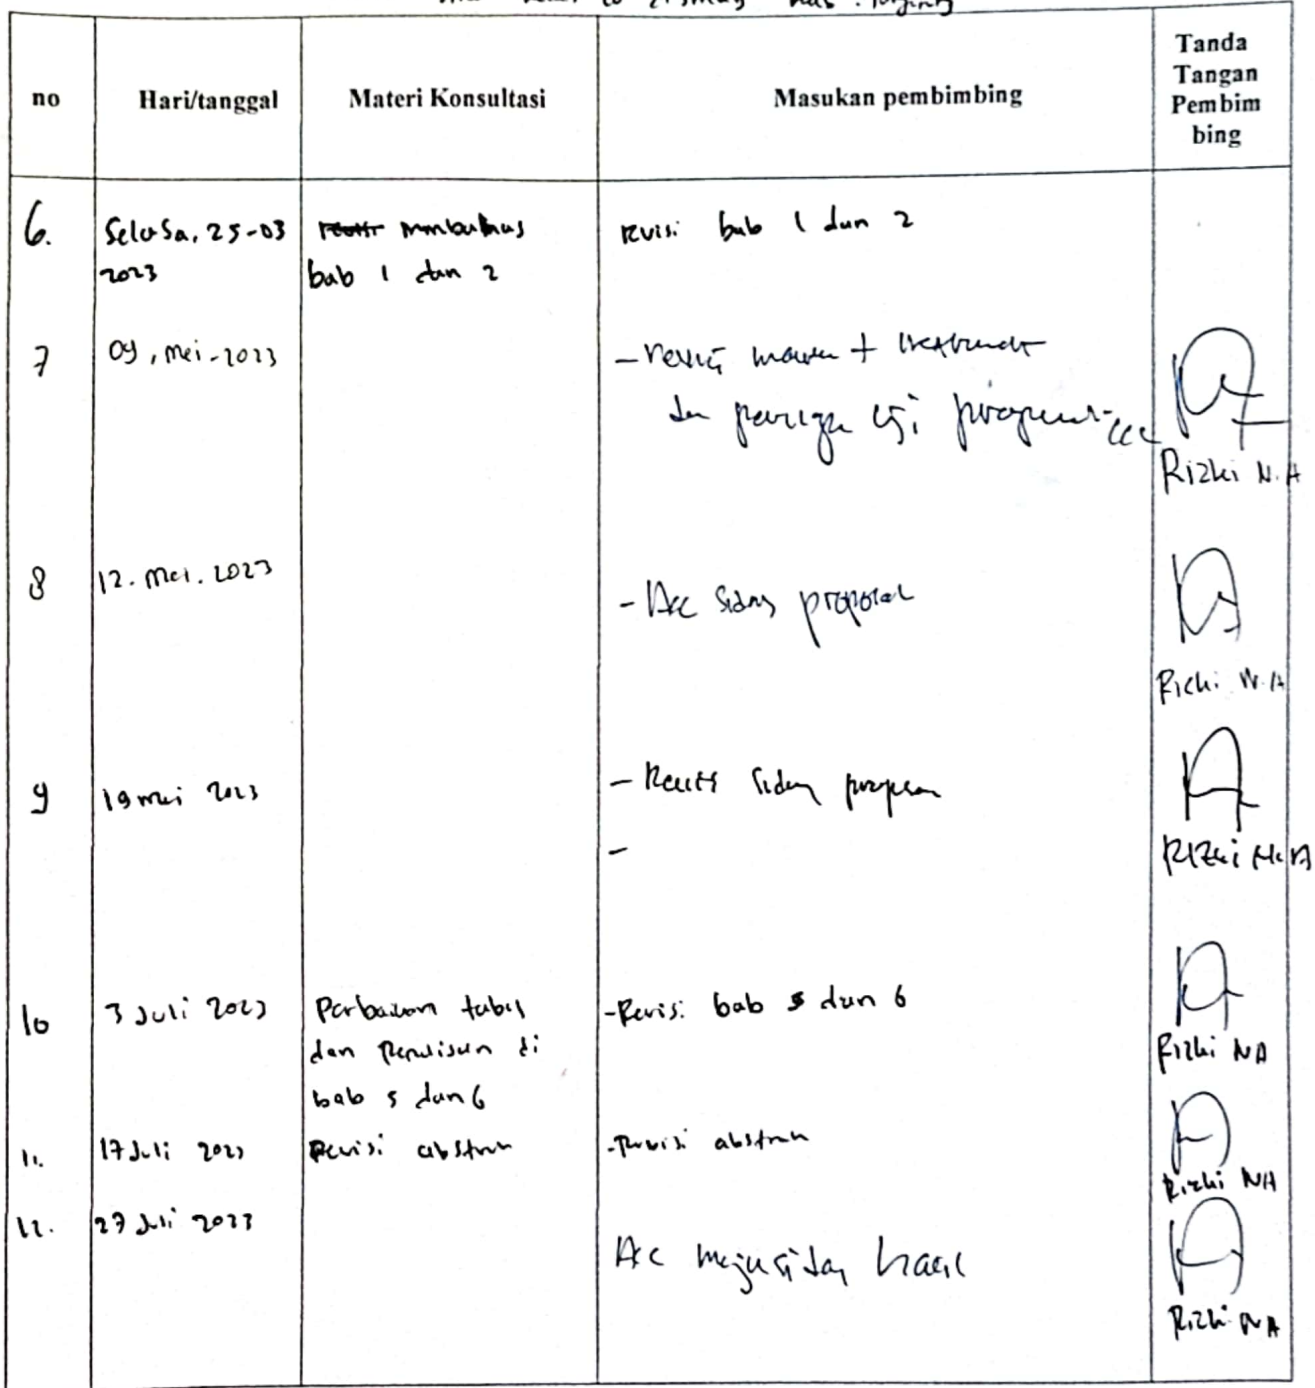 no
Hari/tanggal
Materi Konsultasi
Masukan pembimbing
Tanda
Tangan
Pembim
bing
6.
Selasa, 25-03
2023
membahas
bab 1 dan 2
revisi bab 1 dan 2
7
09, mei-2023
- revisi
Rizki N.A
8
12. mei. 2023
- Acc sidang proposal
Rizki N.A
9
19 mei 2023
- Revisi sidang proposal
-
Rizki N.A
10
3 Juli 2023
Perbaikan tabel
dan Penulisan di
bab 5 dan 6
-Revisi bab 5 dan 6
Rizki NA
11.
17 Juli 2023
Revisi abstrak
-Revisi abstrak
Rizki NA
12.
27 Juli 2023
Acc maju sidang hasil
Rizki NA